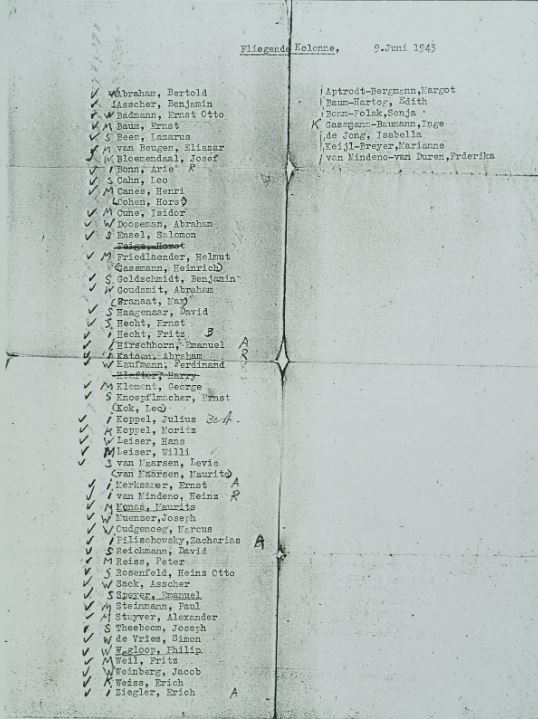 Fliegende Kolonne, 9.Juni 1943
✓ W Abraham, Bertold
✓ Asscher, Benjamin
✓ W Badmann, Ernst Otto
✓ M Baum, Ernst
✓ S Beem, Lazarus
✓ M van Beugen, Eliazar
✓ W Bloemendaal, Josef
✓ I Bonn, Arie R
✓ S Cahn, Leo
✓ M Canes, Henri
(Cohen, Horst)
✓ M Cune, Isidor
✓ W Dooseman, Abraham
✓ S Ensel, Salomon
Feige, Horst
✓ M Friedlaender, Helmut
(Gassmann, Heinrich)
✓ S Goldschmidt, Benjamin
✓ W Goudsmit, Abraham
(Granaat, Max)
✓ S Haagenaar, David
✓ S Hecht, Ernst
✓ I Hecht, Fritz B
✓ I Hirschhorn, Emanuel A
✓ S Katoen, Abraham R
✓ W Kaufmann, Ferdinand
Klafter, Harry
✓ M Klement, George
✓ S Knoepflmacher, Ernst
(Kok, Leo)
✓ I Koppel, Julius
✓ K Koppel, Moritz
✓ W Leiser, Hans
✓ M Leiser, Willi
✓ S van Maarsen, Levie
(van Maarsen, Maurits)
✓ I Merksamer, Ernst A
✓ I van Mindeno, Heinz R
✓ M Monas, Maurits
✓ W Muenzer,Joseph
✓ W Oudgenoeg, Marcus
✓ I Pilischowsky,Zacharias A
✓ S Reichmann, David
✓ M Reiss, Peter
✓ S Rosenfeld, Heinz Otto
✓ W Sack, Asscher
✓ S Speyer, Emanuel
✓ M Steinmann, Paul
✓ M Stuyver, Alexander
✓ S Theeboom, Joseph
✓ W de Vries, Simon
✓ W Wegloop, Philip
✓ M Weil, Fritz
✓ W Weinberg, Jacob
✓ K Weiss, Erich
✓ I Ziegler, Erich A
I Aptrodt-Bergmann,Margot
I Baum-Hartog, Edith
I Bonn-Polak,Sonja
K Gassmann-Baumann,Inge
I de Jong, Isabella
I Keijl-Breyer,Marianne
I van Mindeno-van Duren,Frderika